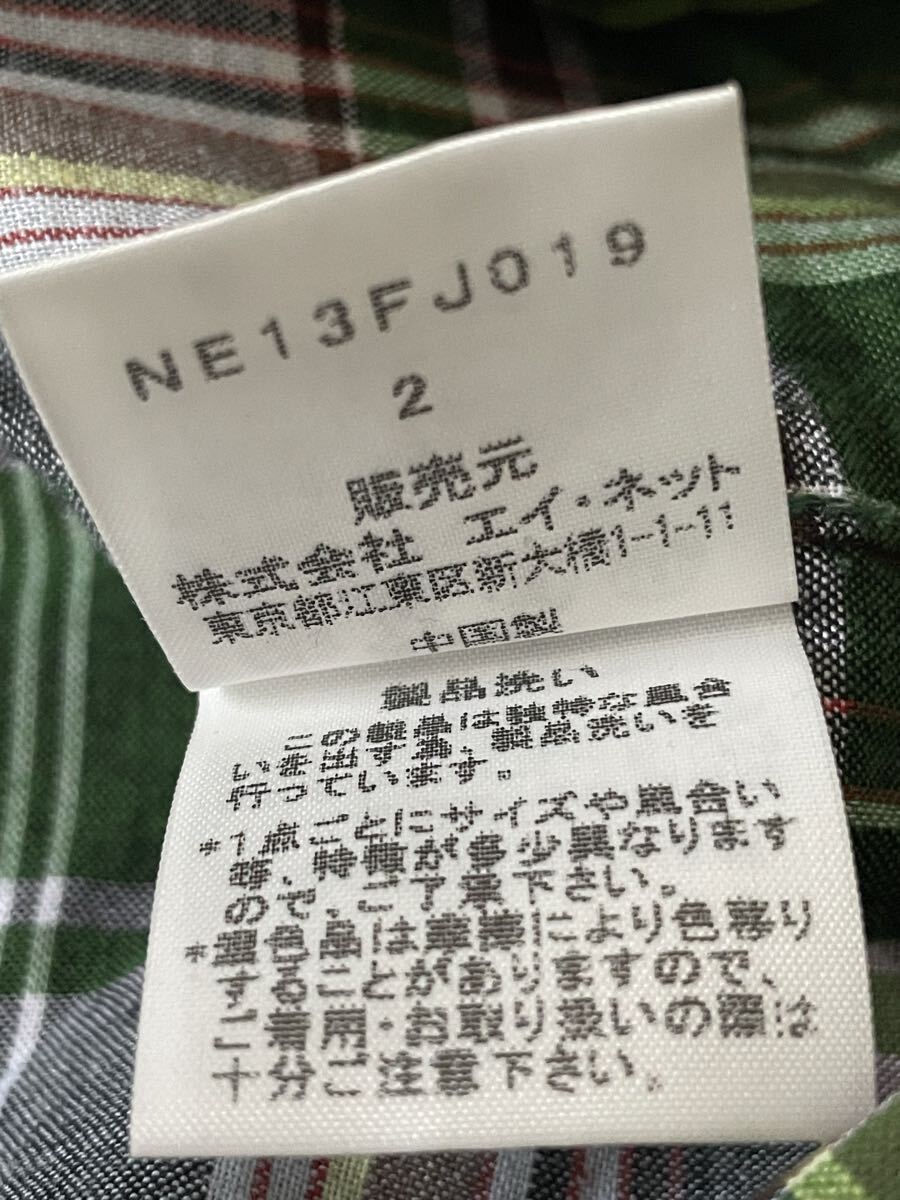 NE13FJ019
2
販売元
株式会社 エイ・ネット
東京都江東区新大橋1-1-11
中国製
製品洗い
この製品は独特な風合
いを出す為、製品洗いを
行っています。
*1点ごとにサイズや風合い
等、特徴が多少異なります
ので、ご了承下さい。
*濃色品は摩擦により色移り
することがありますので、
ご着用・お取り扱いの際は
十分ご注意下さい。